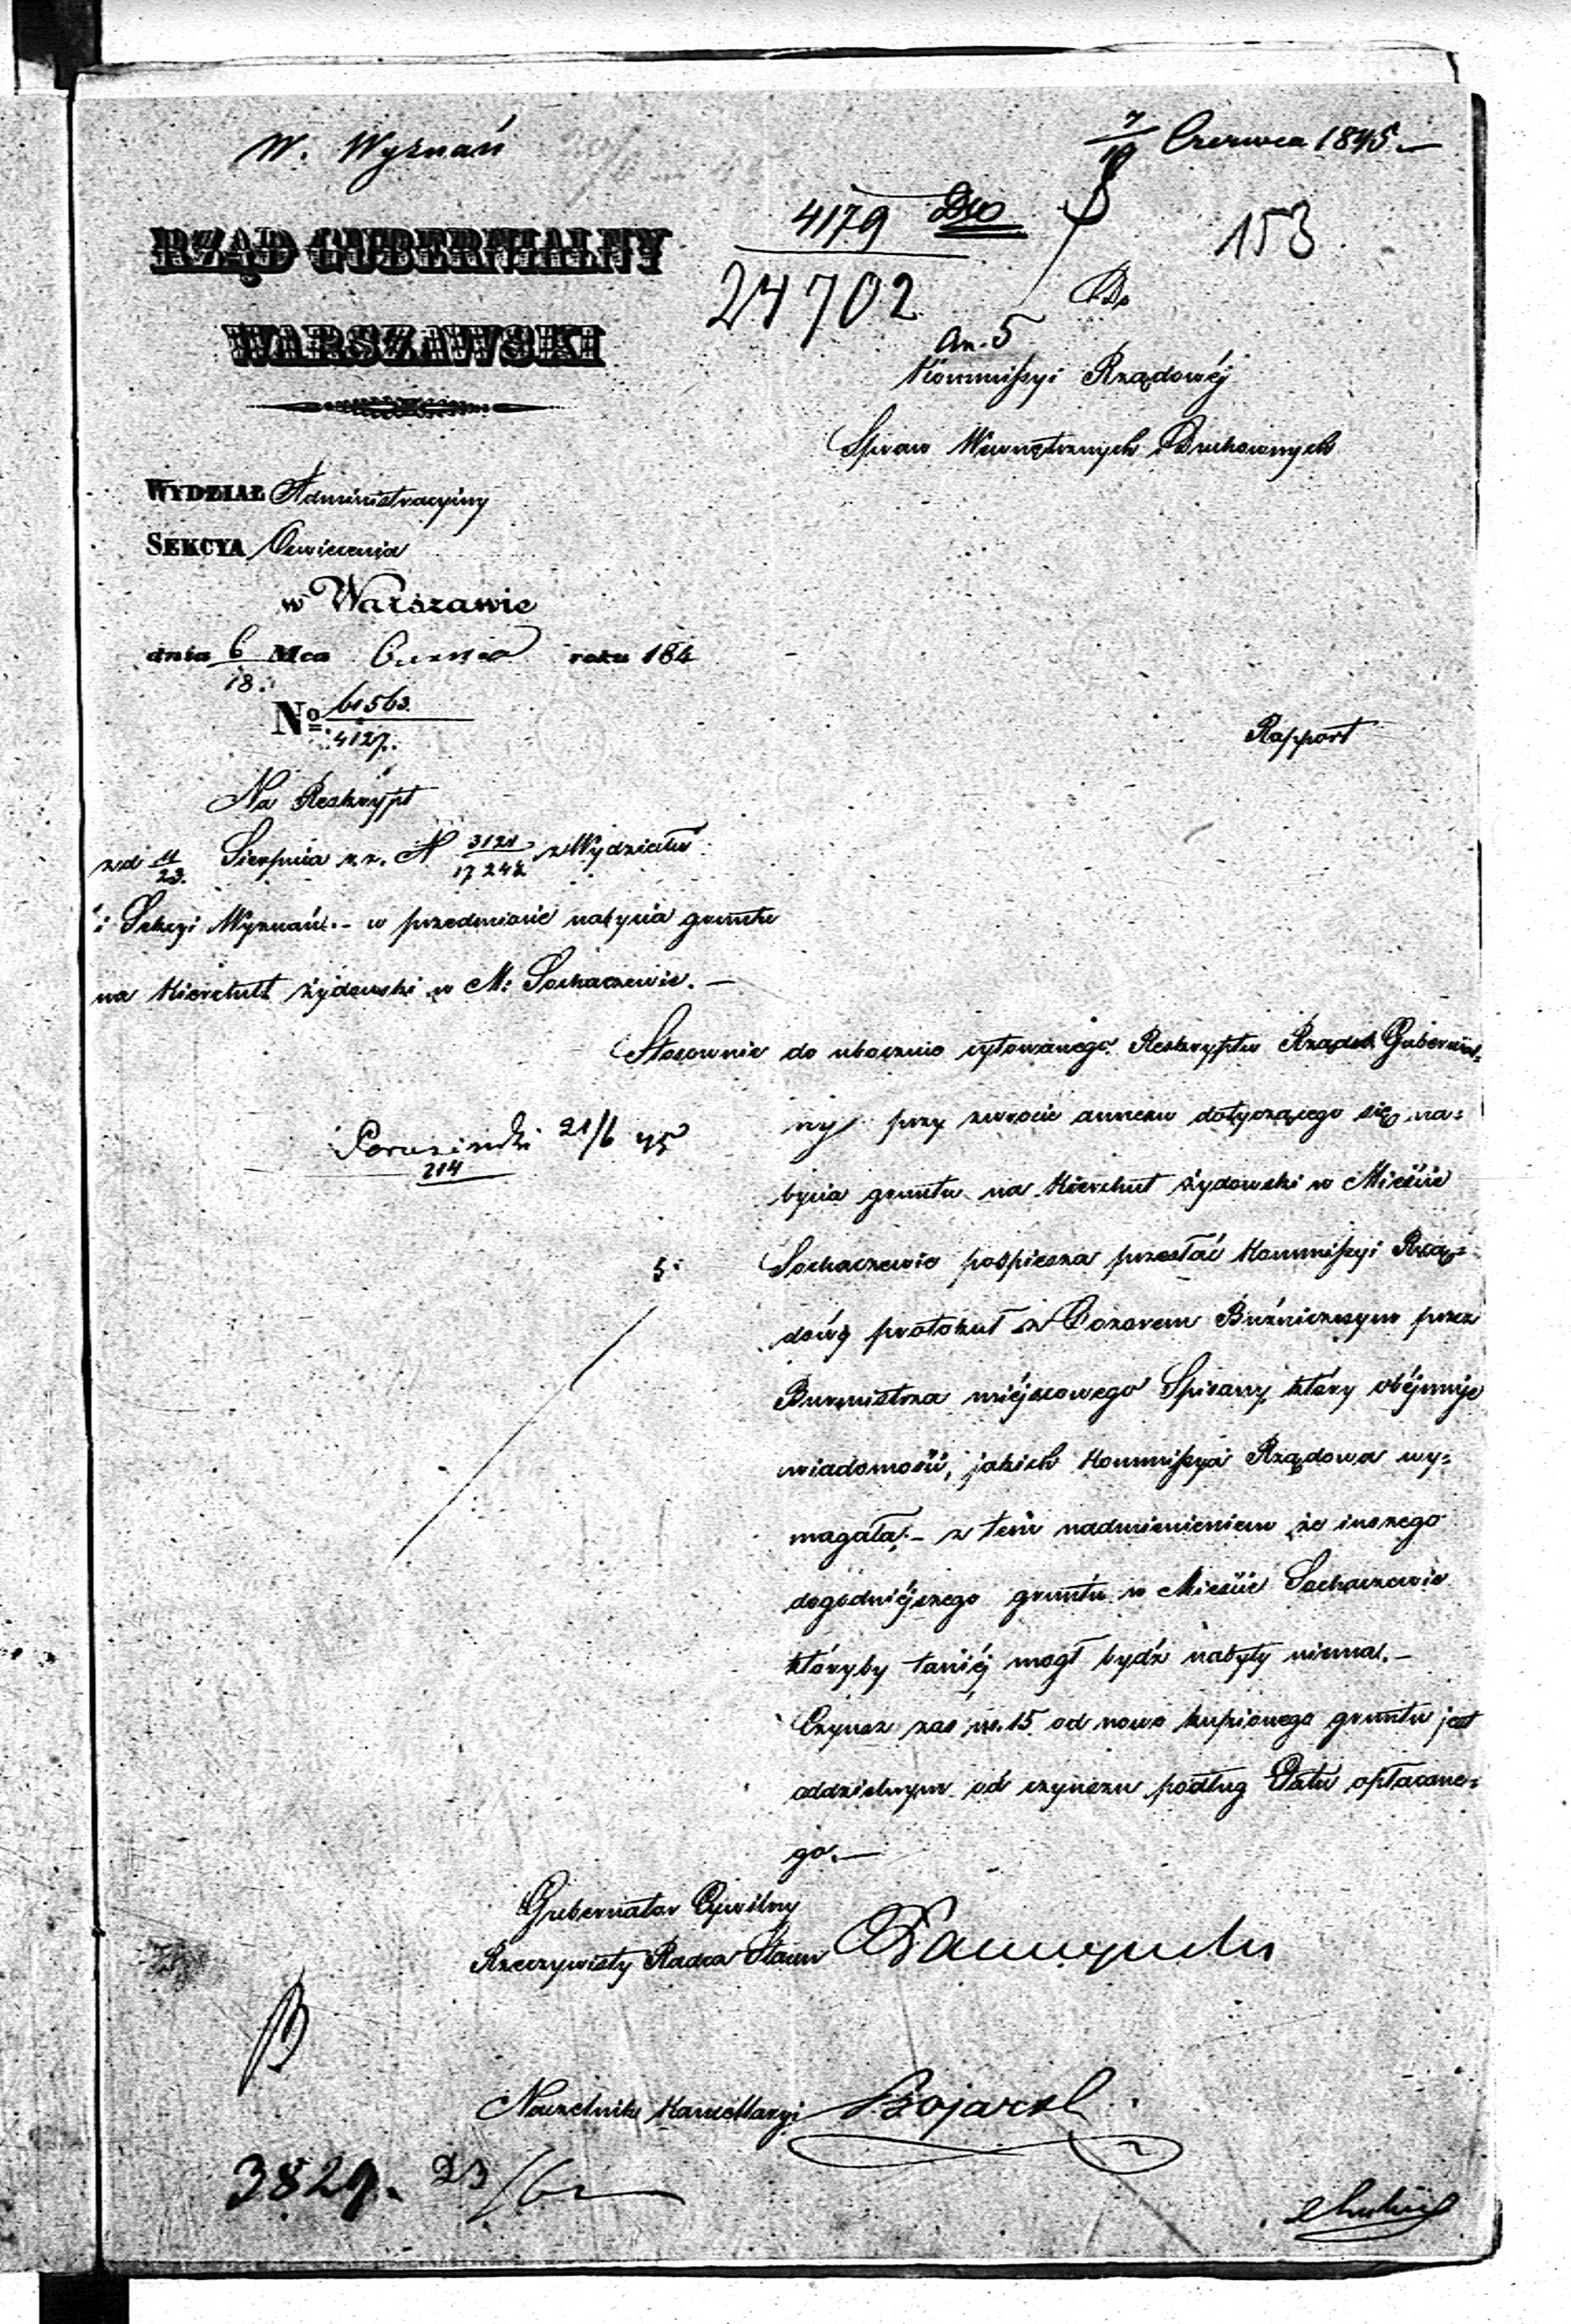 W. Wyznań
7/19 Czerwca 1845.—
4179 Dto
24702
153
RZĄD GUBERNIALNY
WARSZAWSKI
Do
An. 5
Kommissyi Rządowéj
Spraw Wewnętrznych Duchownych
WYDZIAŁ Administracyiny
SEKCYA Oswiecenia
w Warszawie
dnia 6/18. Mca Czerwca roku 184
No 61563./4127.
Rapport
Na Reskrypt
z d 11/23. Sierpnia r. z. N 3121/17242 z Wydziału
i Sekcyi Wyznań.- w przedmiocie nabycia gruntu
na Kierchutt żydowski w M: Sochaczewie.—
Stosownie do ubocznie cytowanego Reskryptu Rząd Gubernial-
ny przy zwrocie annexu dotyczącego się na-
bycia gruntu na Kierchut żydowski w Mieście
Sochaczewie pospiesza przesłać Kommissyi Rzą-
dowéj protokuł z Dozorem Bużniczym przez
Burmistrza miéjscowego Spisany, który obéjmuje
wiadomości, jakich Kommissya Rządowa wy-
magała,- z tém nadmienieniem że inszego
dogodniéjszego gruntu w Mieście Sochaczewie
któryby taniéj mogł bydź nabyty niema.—
Czynsz zaś rs. 15 od nowo kupionego gruntu jest
oddzielnym od czynszu podług Etatu opłacone-
go.—
21/6 45
214
5.
Gubernator Cywilny
Rzeczywisty Radca Stanu
Naczelnik Kancellaryi
3829. 23/6